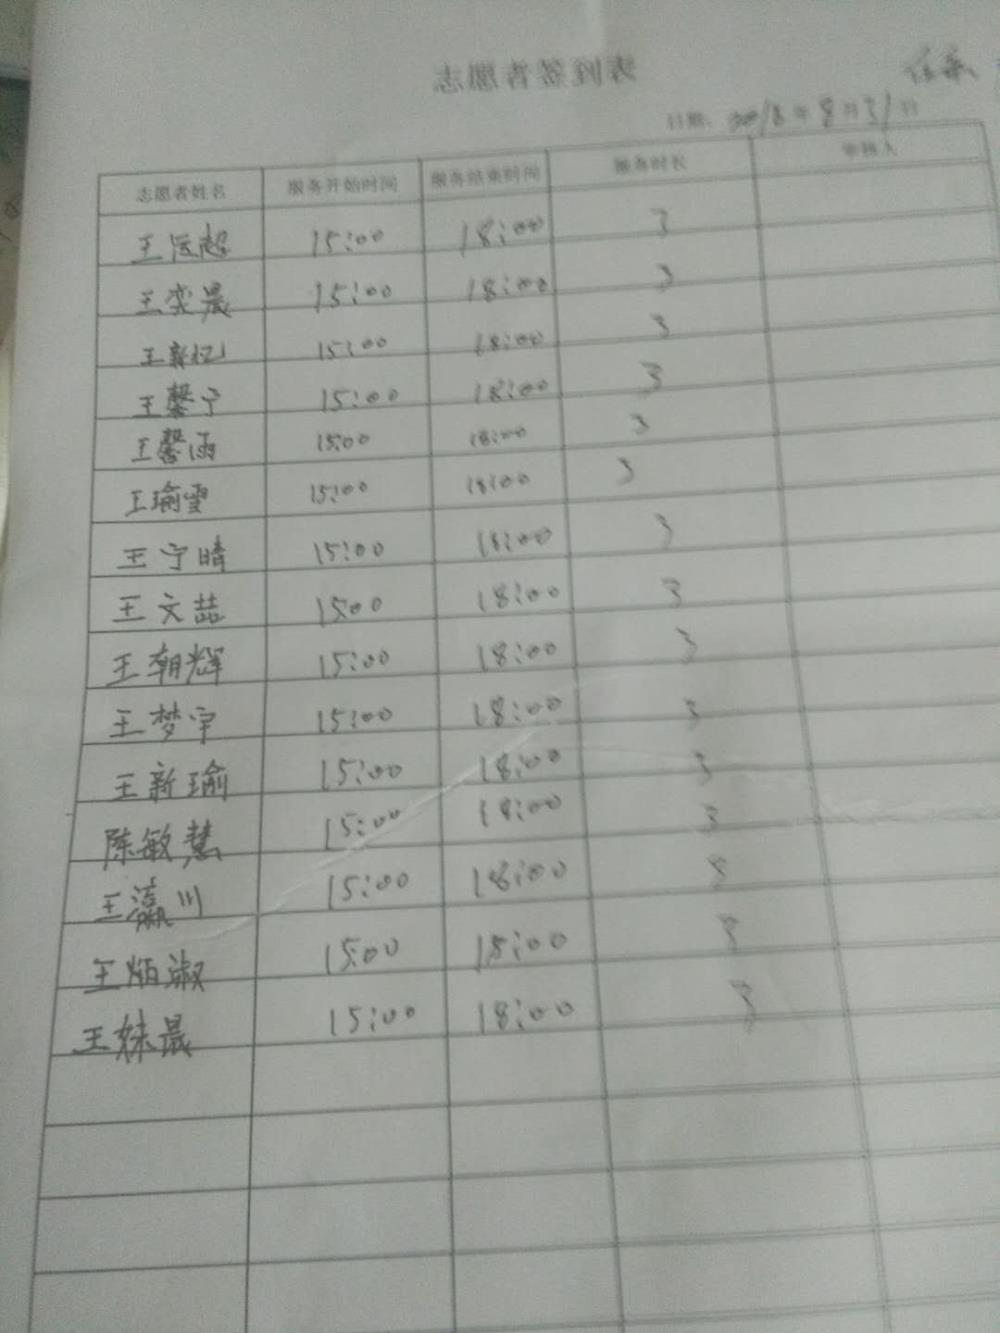 志愿者签到表
日期：2018年8月31日
志愿者姓名 服务开始时间 服务结束时间 服务时长 审核人
王 15:00 18:00 3
王奕晨 15:00 18:00 3
王新忆 15:00 18:00 3
王馨宁 15:00 18:00 3
王馨雨 15:00 18:00 3
王瑜雪 15:00 18:00 3
王宁晴 15:00 18:00 3
王文喆 15:00 18:00 3
王朝辉 15:00 18:00 3
王梦宇 15:00 18:00 3
王新瑜 15:00 18:00 3
陈敏慧 15:00 18:00 3
王瀛川 15:00 18:00 3
王炳淑 15:00 18:00 3
王妹晨 15:00 18:00 3